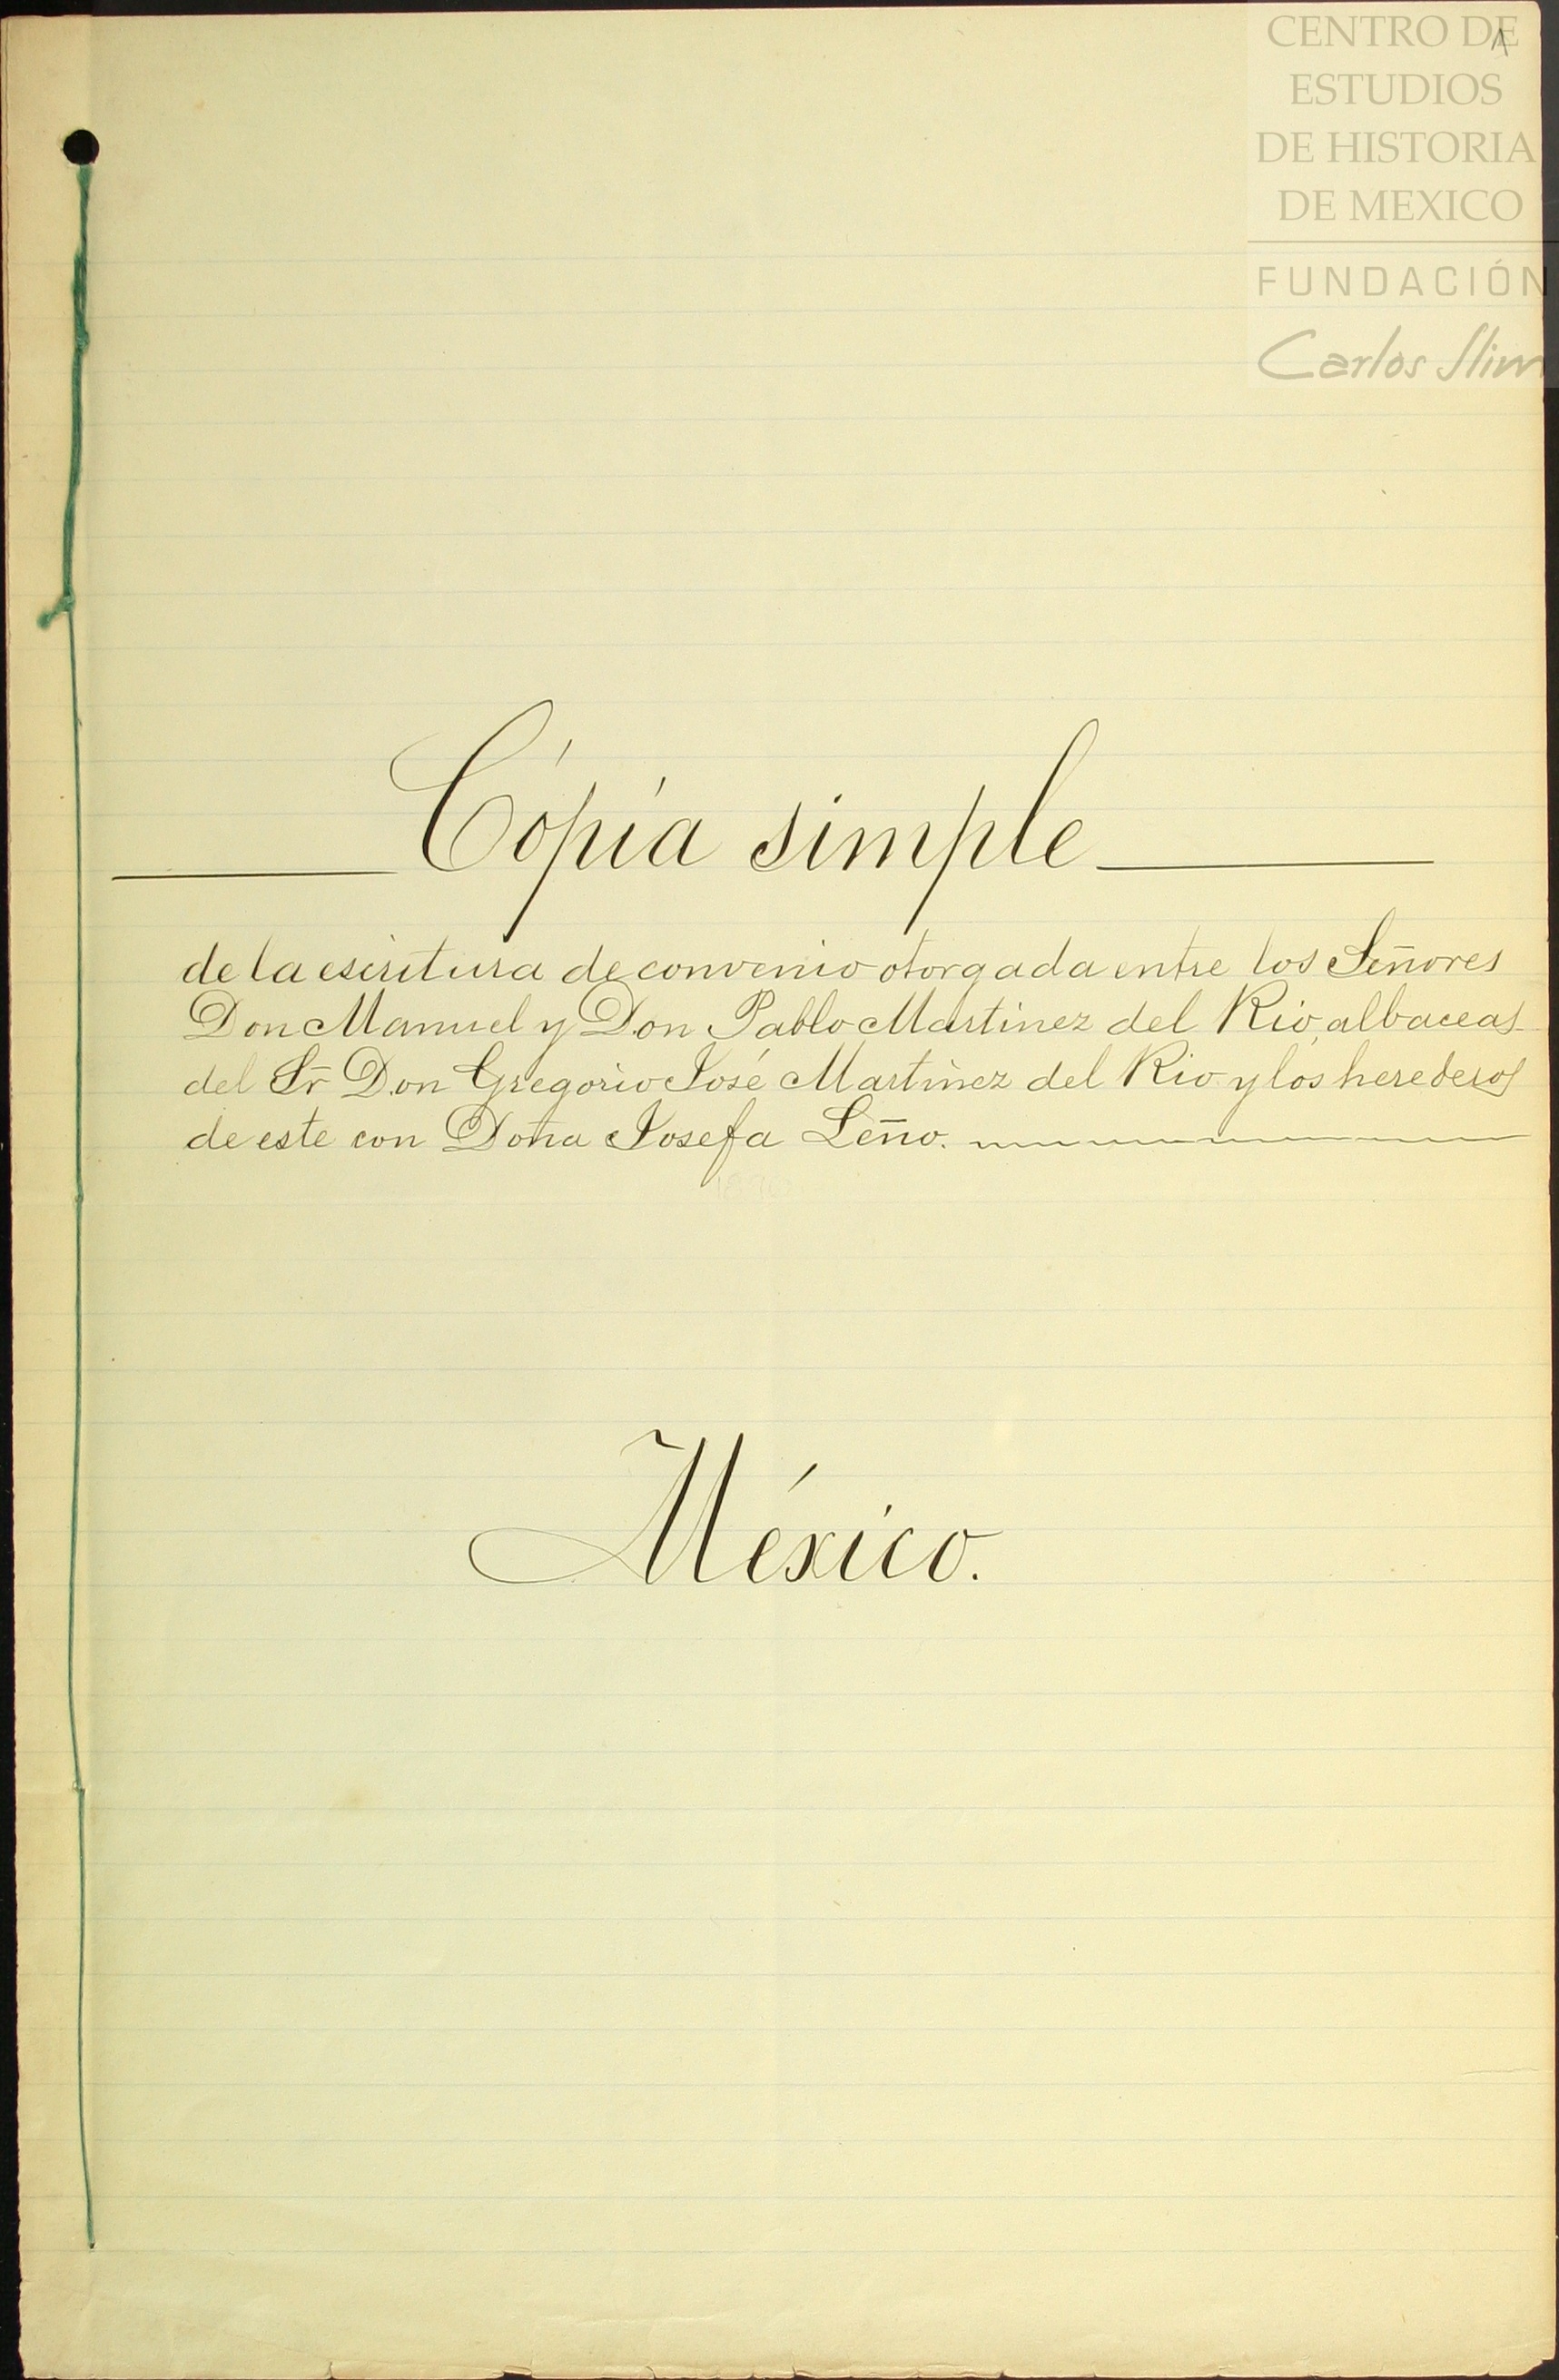 CENTRO DE
ESTUDIOS
DE HISTORIA
DE MEXICO
FUNDACIÓN
Carlos Slim
1
Cópia simple
de la escritura de convenio otorgada entre los Señores
Don Manuel y Don Pablo Martinez del Rio, albaceas
del Sr Don Gregorio José Martinez del Rio y los herederos
de este con Doña Josefa Leño.
México.